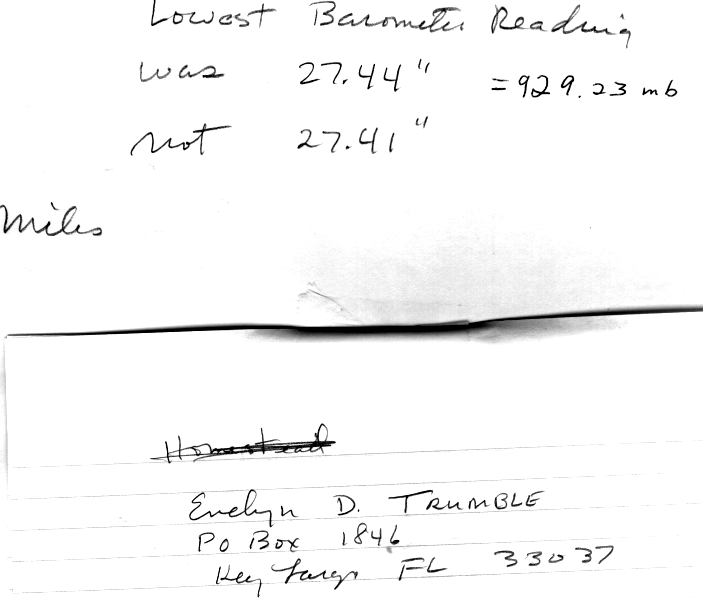 Lowest Barometer Reading
was 27.44" = 929.23 mb
not 27.41"
Miles
Homestead
Evelyn D. TRUMBLE
PO Box 1846
Key Largo FL 33037